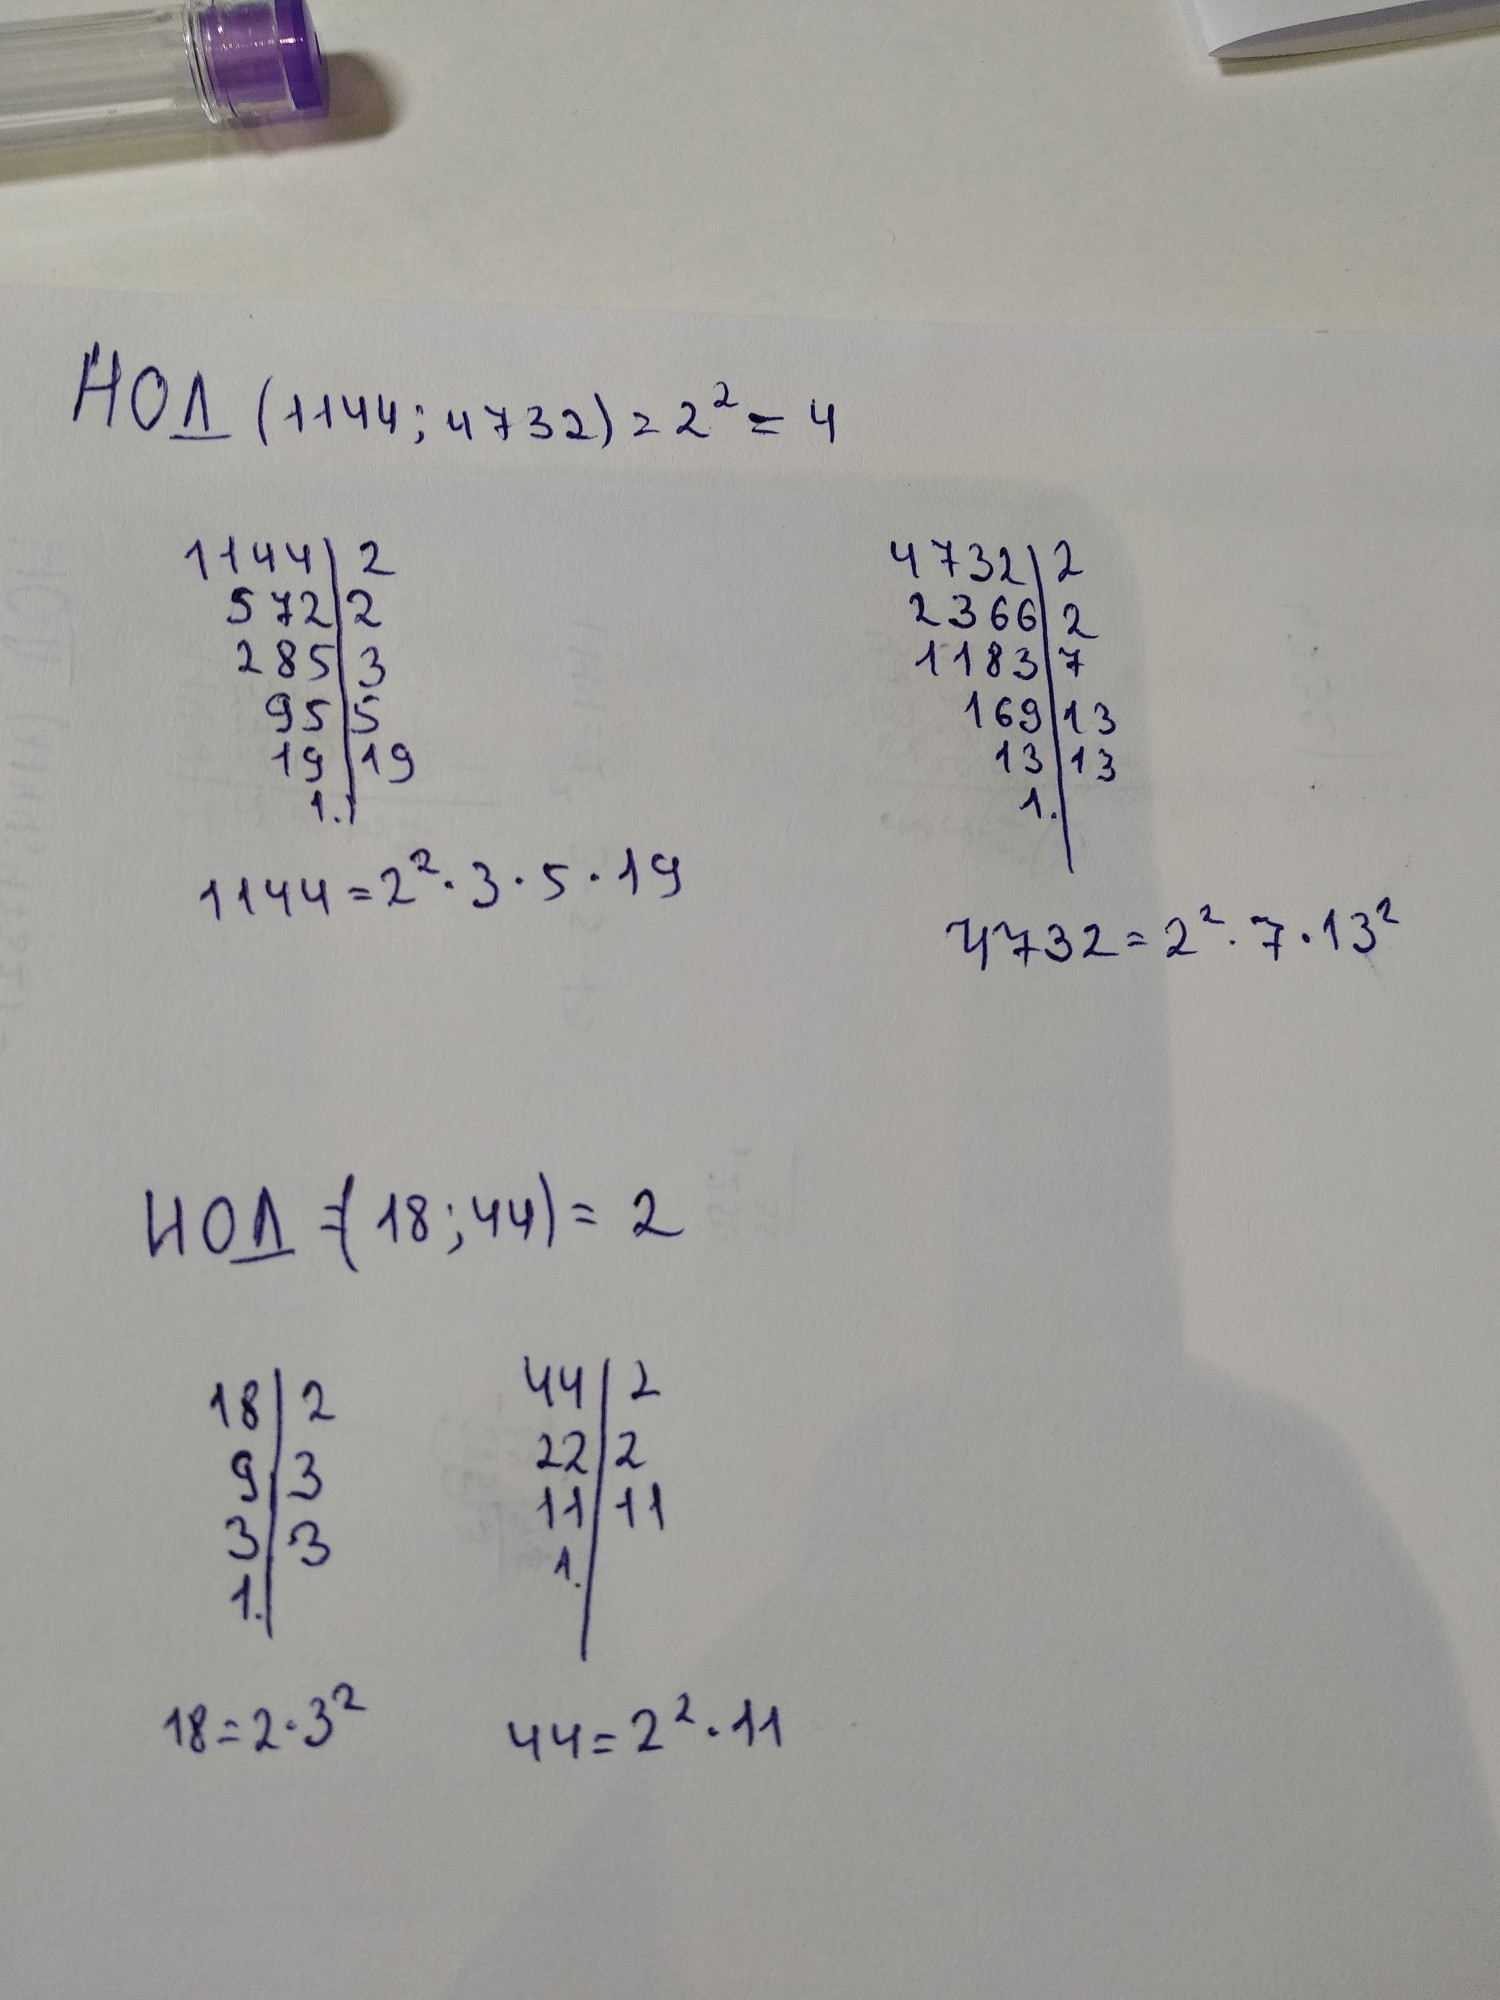 НОД (1144; 4732) = 2² = 4
1144 | 2
572 | 2
285 | 3
95 | 5
19 | 19
1.
1144 = 2² · 3 · 5 · 19
4732 | 2
2366 | 2
1183 | 7
169 | 13
13 | 13
1.
4732 = 2² · 7 · 13²
НОД = (18; 44) = 2
18 | 2
9 | 3
3 | 3
1.
18 = 2 · 3²
44 | 2
22 | 2
11 | 11
1.
44 = 2² · 11